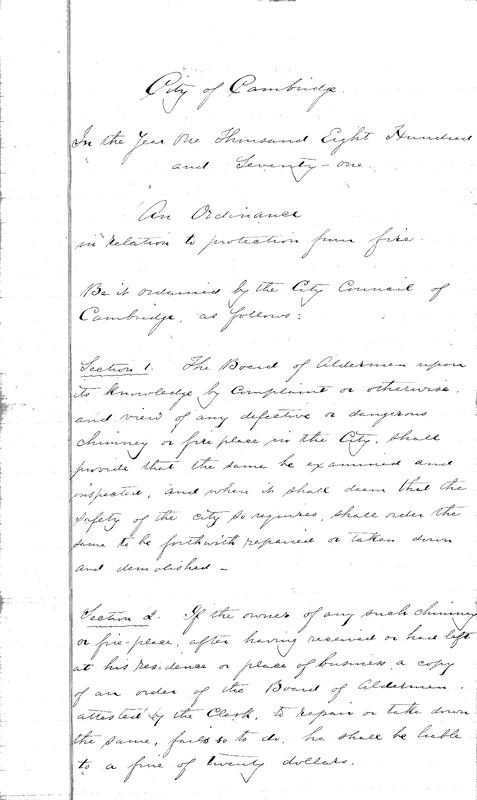 City of Cambridge.
In the Year One Thousand Eight Hundred
and Seventy-one.
An Ordinance
in relation to protection from fire.
Be it ordained by the City Council of
Cambridge, as follows:
Section 1. The Board of Aldermen upon
its knowledge by Complaint or otherwise,
and view of any defective or dangerous
chimney or fire place in the City, shall
provide that the same be examined and
inspected, and when it shall deem that the
safety of the city so requires, shall order the
same to be forthwith repaired or taken down
and demolished -
Section 2. If the owner of any such chimney
or fire-place, after having received or had left
at his residence or place of business, a copy
of an order of the Board of Aldermen,
attested by the Clerk, to repair or take down
the same, fails so to do, he shall be liable
to a fine of twenty dollars.